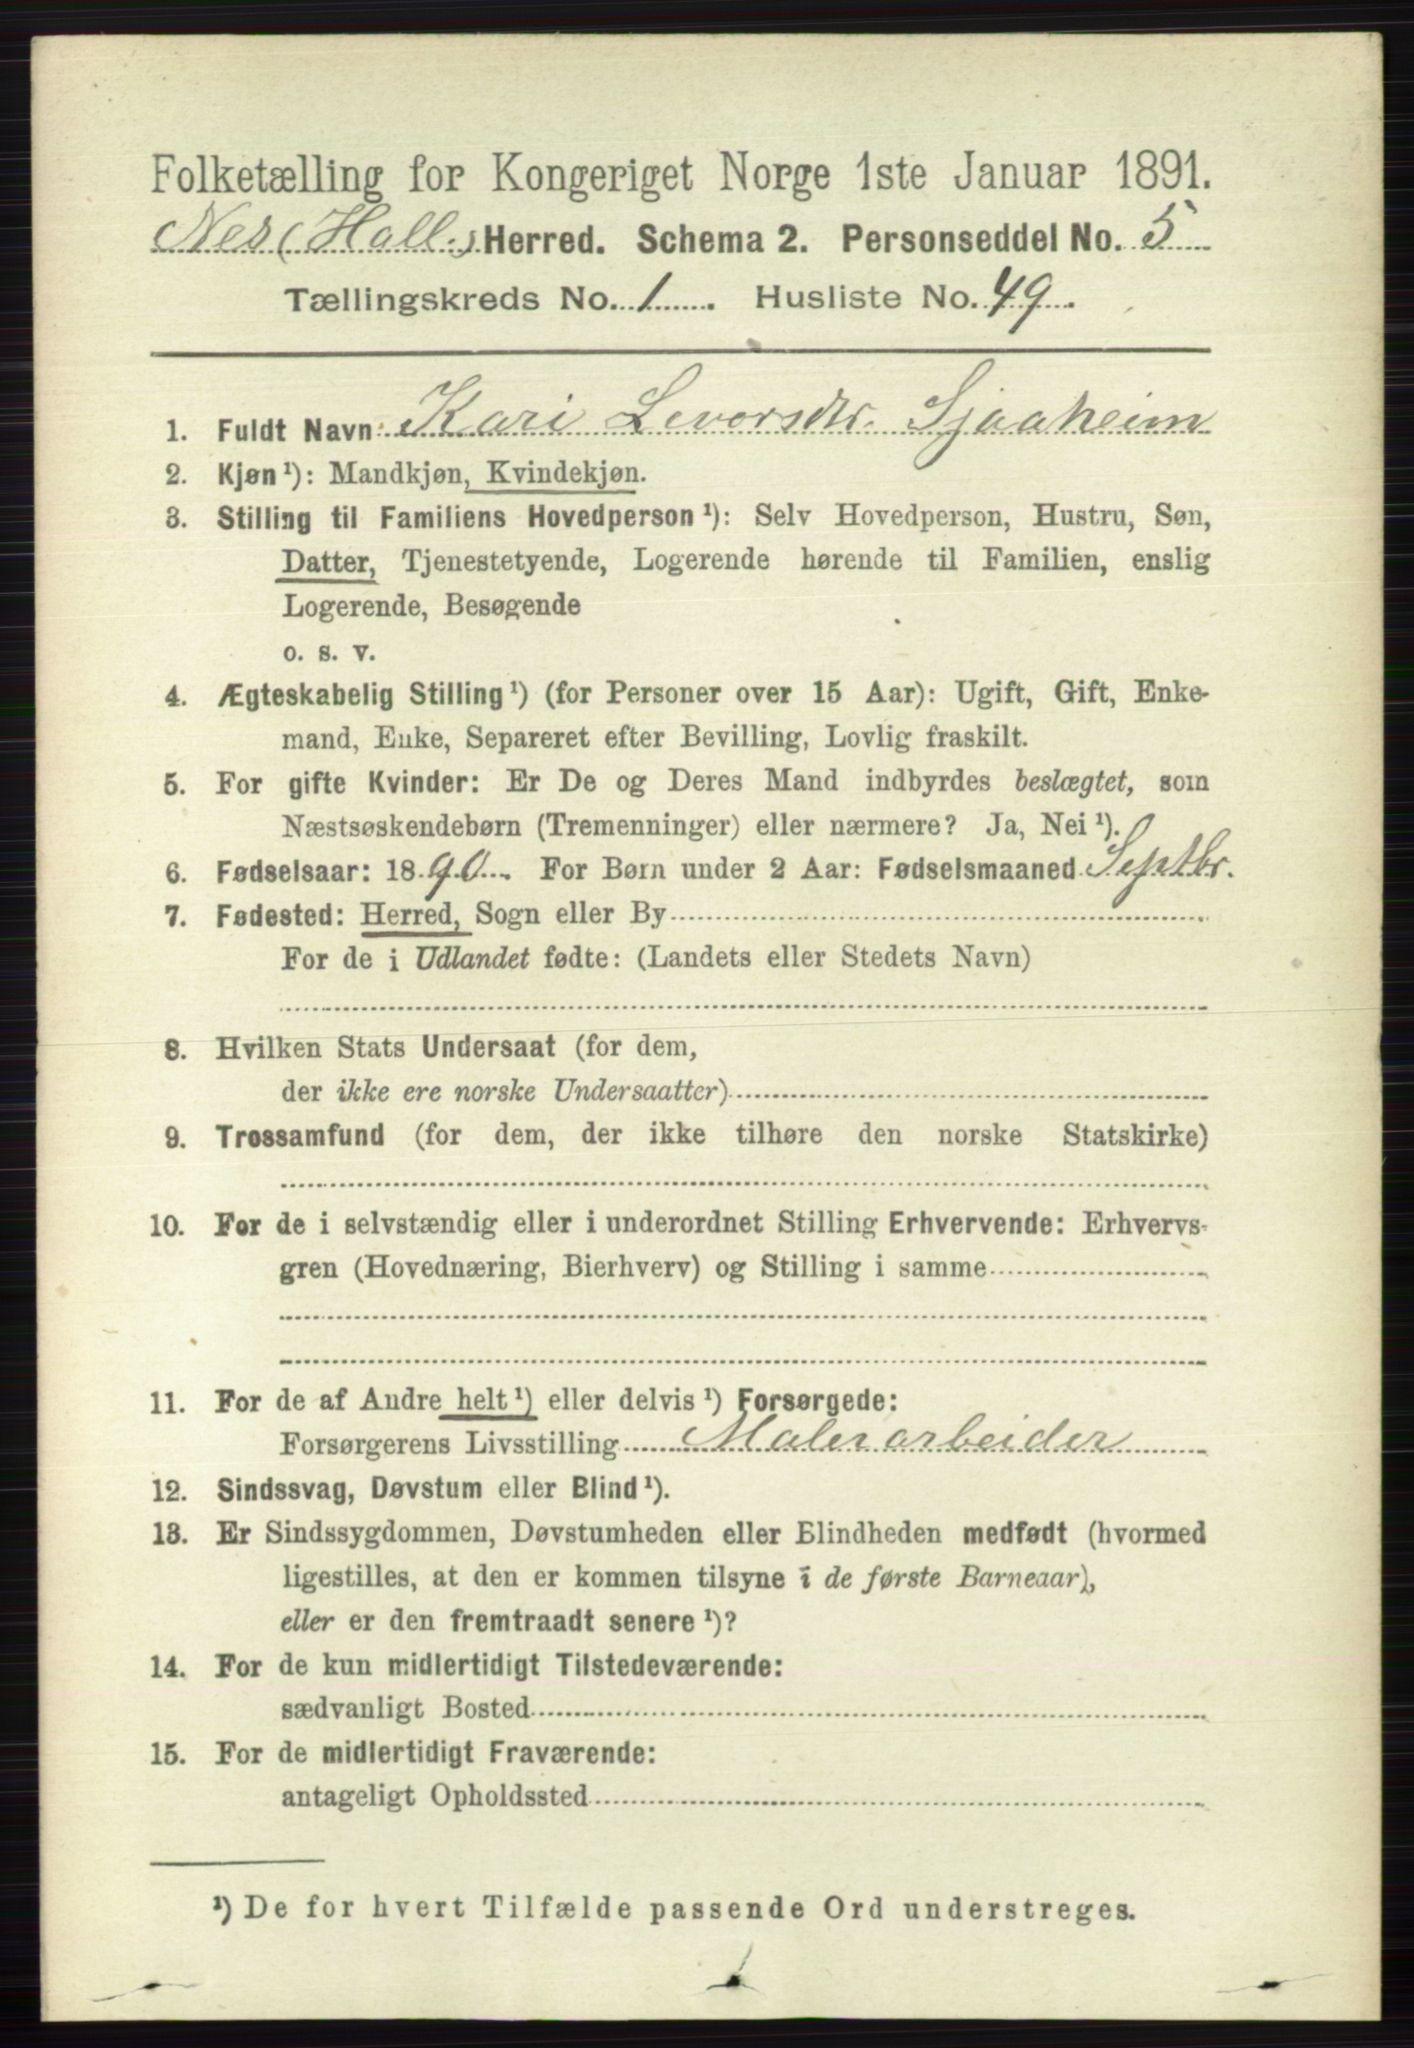 Folketælling for Kongeriget Norge 1ste Januar 1891.
Nes (Hall.) Herred. Schema 2. Personseddel No. 5
Tællingskreds No. 1. Husliste No. 49.
1. Fuldt Navn Kari Levorsdtr. Sjaaheim
2. Kjøn¹): Mandkjøn, Kvindekjøn.
3. Stilling til Familiens Hovedperson¹): Selv Hovedperson, Hustru, Søn,
Datter, Tjenestetyende, Logerende hørende til Familien, enslig
Logerende, Besøgende
o. s. v.
4. Ægteskabelig Stilling¹) (for Personer over 15 Aar): Ugift, Gift, Enke-
mand, Enke, Separeret efter Bevilling, Lovlig fraskilt.
5. For gifte Kvinder: Er De og Deres Mand indbyrdes beslægtet, som
Næstsøskendebørn (Tremenninger) eller nærmere? Ja, Nei¹).
6. Fødselsaar: 1890. For Børn under 2 Aar: Fødselsmaaned Septbr.
7. Fødested: Herred, Sogn eller By
For de i Udlandet fødte: (Landets eller Stedets Navn)
8. Hvilken Stats Undersaat (for dem,
der ikke ere norske Undersaatter)
9. Trossamfund (for dem, der ikke tilhøre den norske Statskirke)
10. For de i selvstændig eller i underordnet Stilling Erhvervende: Erhvervs-
gren (Hovednæring, Bierhverv) og Stilling i samme
11. For de af Andre helt¹) eller delvis¹) Forsørgede:
Forsørgerens Livsstilling Malerarbeider
12. Sindssvag, Døvstum eller Blind¹).
13. Er Sindssygdommen, Døvstumheden eller Blindheden medfødt (hvormed
ligestilles, at den er kommen tilsyne i de første Barneaar),
eller er den fremtraadt senere¹)?
14. For de kun midlertidigt Tilstedeværende:
sædvanligt Bosted
15. For de midlertidigt Fraværende:
antageligt Opholdssted
¹) De for hvert Tilfælde passende Ord understreges.